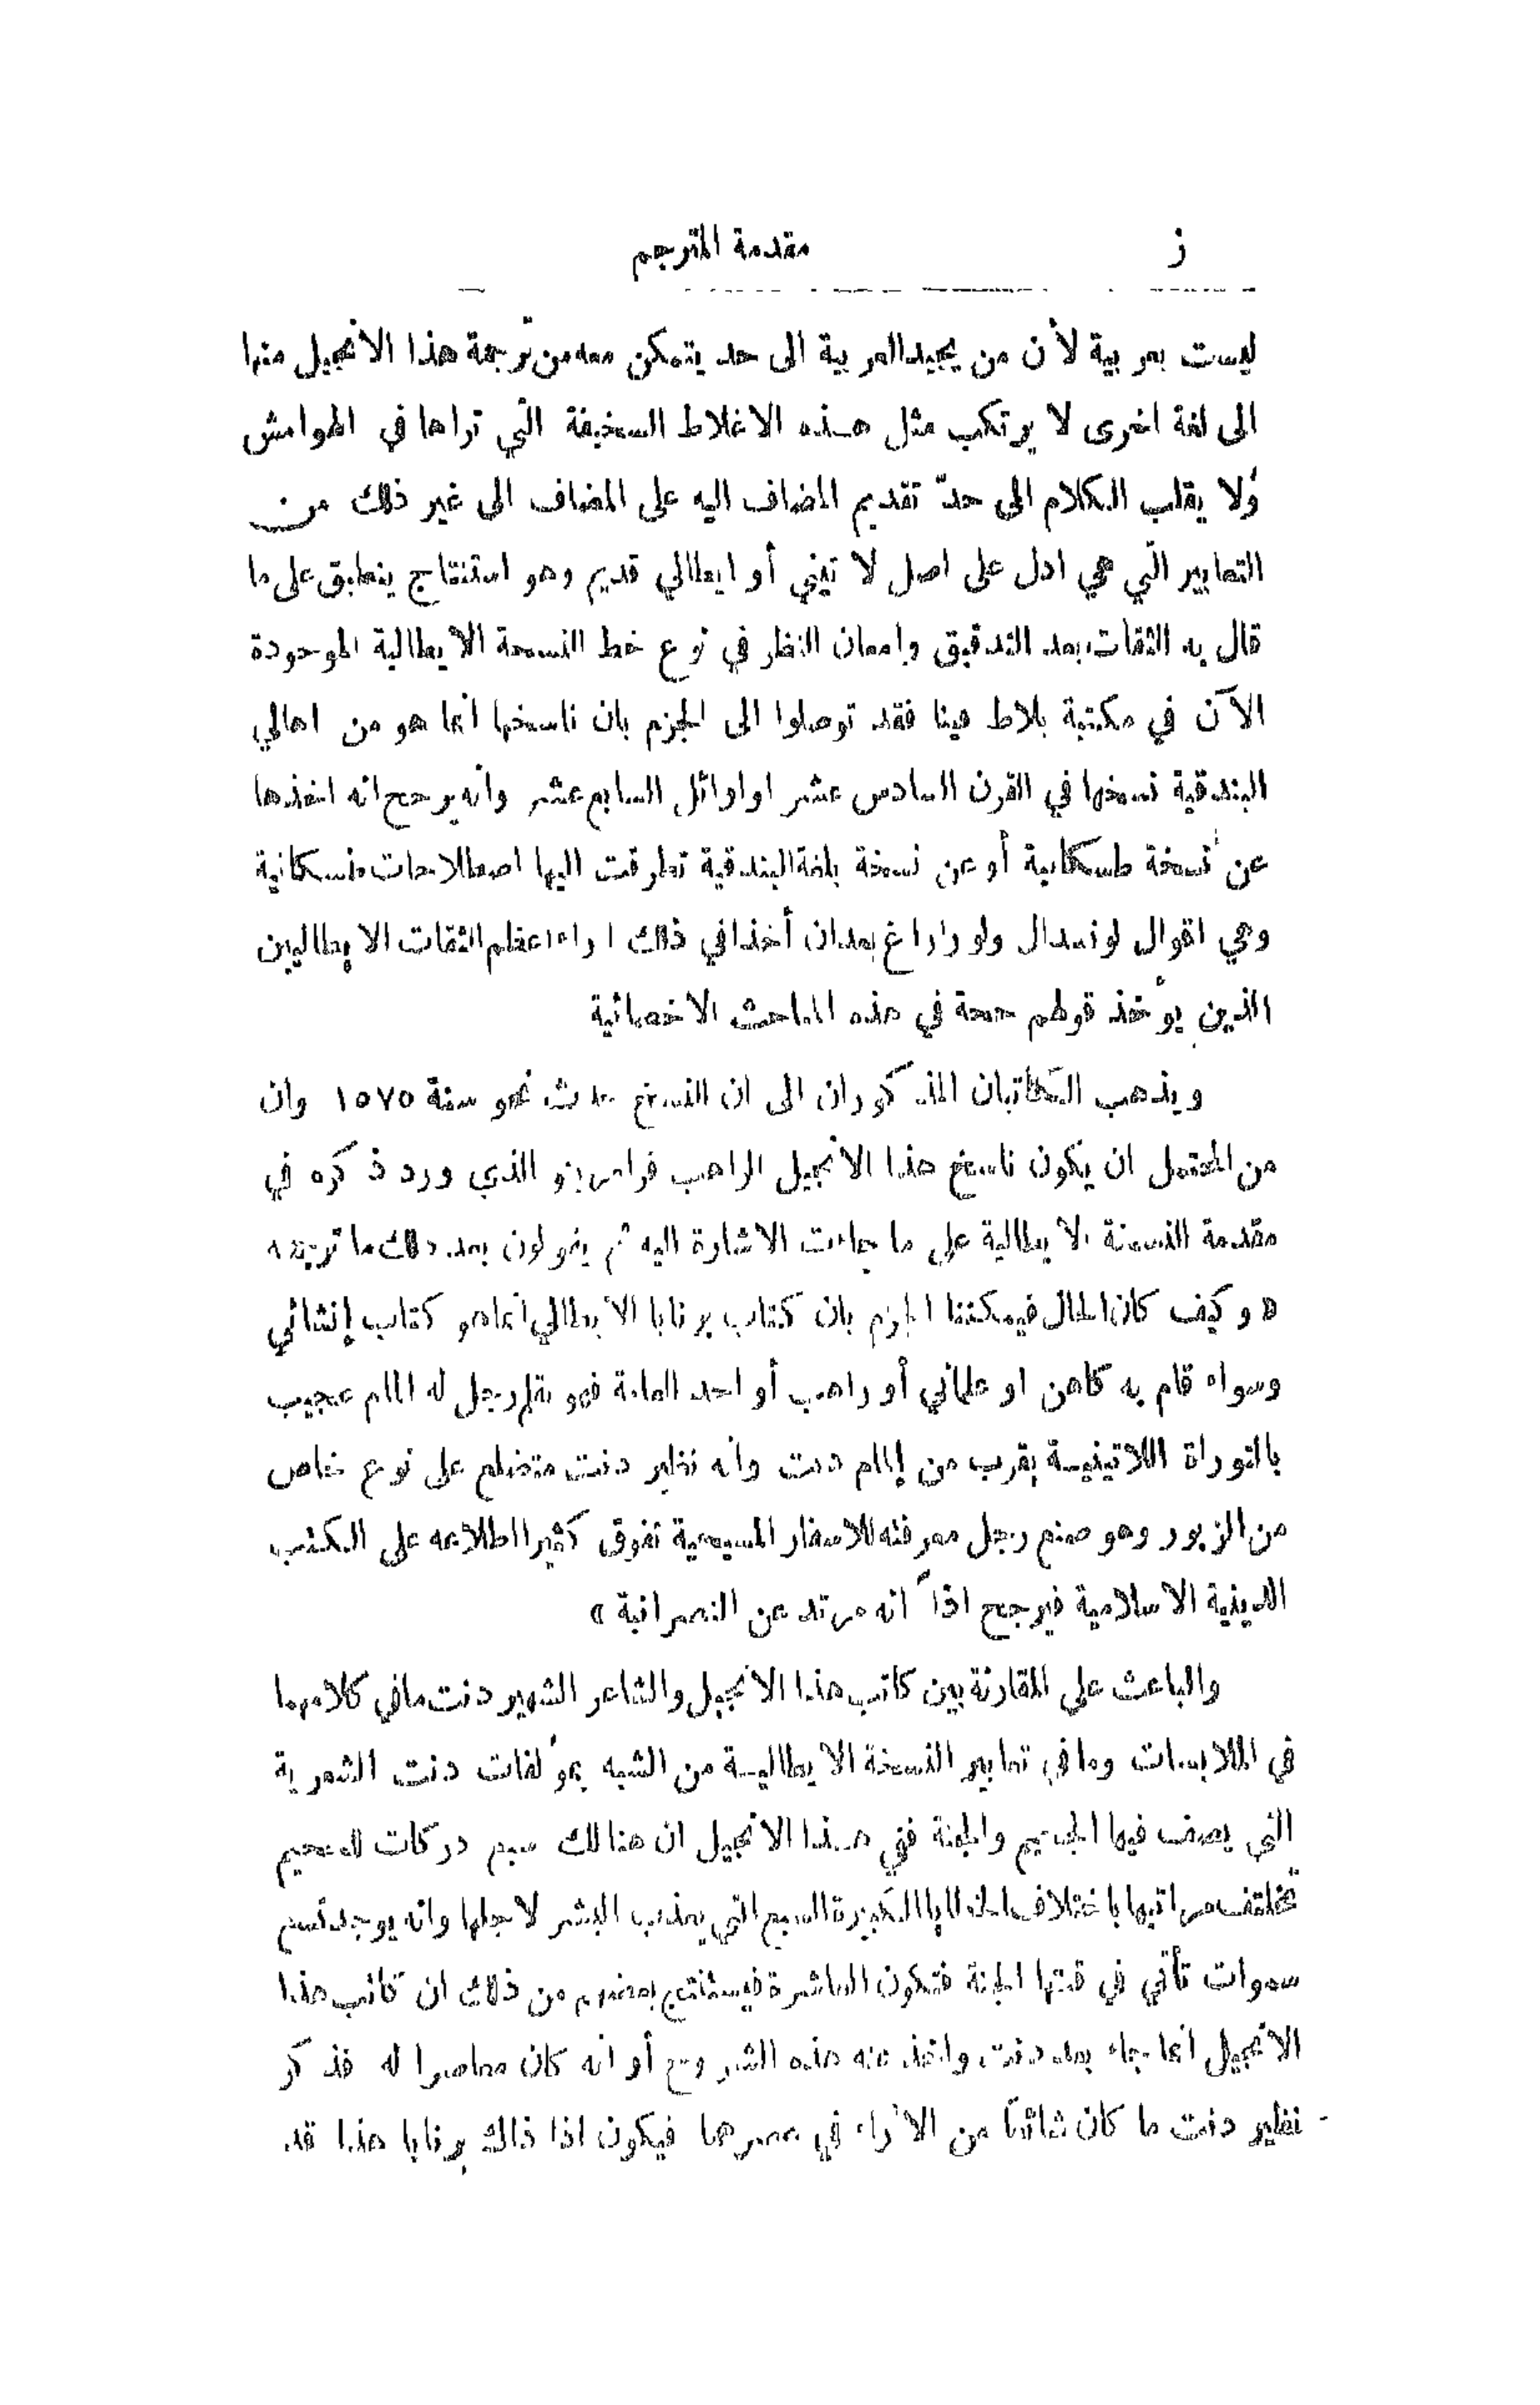 ز
مقدمة المترجم
ليست بعربية لأن من يجيد العربية الى حد يتمكن معه من ترجمة هذا الانجيل منها
الى لغة اخرى لا يرتكب مثل هذه الاغلاط السخيفة التي تراها في الهوامش
ولا يقلب الكلام الى حدّ تقديم المضاف اليه على المضاف الى غير ذلك من
التعابير التي هي ادل على اصل لاتيني أو ايطالي قديم وهو استنتاج ينطبق على ما
قال به الثقات بعد التدقيق وامعان النظر في نوع خط النسخة الايطالية الموجودة
الآن في مكتبة بلاط فينا فقد توصلوا الى الجزم بان ناسخها انما هو من اهالي
البندقية نسخها في القرن السادس عشر او اوائل السابع عشر وانه يرجح انه اخذها
عن نسخة طسكانية أو عن نسخة بلغة البندقية تطرقت اليها اصطلاحات طسكانية
وهي اقوال لونسدال ولورا راغ بعد ان أخذا في ذلك اراء اعظم الثقات الايطاليين
الذين يؤخذ قولهم حجة في هذه المباحث الاخصائية
ويذهب الكاتبان المذكوران الى ان النسخ حدث نحو سنة ١٥٧٥ وان
من المحتمل ان يكون ناسخ هذا الانجيل الراهب فرامرينو الذي ورد ذكره في
مقدمة النسخة الايطالية على ما جاءت الاشارة اليه ثم يقولون بعد ذلك ما تربيته
« وكيف كان الحال فيمكننا الجزم بان كتاب برنابا الايطالي انما هو كتاب إنشائي
وسواء قام به كاهن او علماني أو راهب أو احد العامة فهو بقلم رجل له المام عجيب
بالتوراة اللاتينية يقرب من إلمام دنت وانه نظير دنت متضلع على نوع خاص
من الزبور وهو صنع رجل معرفته للاسفار المسيحية تفوق كثيرا اطلاعه على الكتب
الدينية الاسلامية فيرجح اذاً انه مرتد عن النصرانية »
والباعث على المقارنة بين كاتب هذا الانجيل والشاعر الشهير دنت ما في كلامهما
في الملابسات وما في تعابير النسخة الايطالية من الشبه بمؤلفات دنت الشعرية
التي يصف فيها الجحيم والجنة ففي هذا الانجيل ان هنالك سبع دركات للجحيم
تختلف مراتبها باختلاف الخطايا الكبيرة السبع التي يعذب البشر لاجلها وانه يوجد تسع
سموات تأتي في قمتها الجنة فتكون العاشرة فيستنتج بعضهم من ذلك ان كاتب هذا
الانجيل انما جاء بعد دنت واخذ عنه هذه الشروح أو انه كان معاصرا له فذكر
نظير دنت ما كان شائعاً من الآراء في عصرهما فيكون اذا ذاك برنابا هذا قد